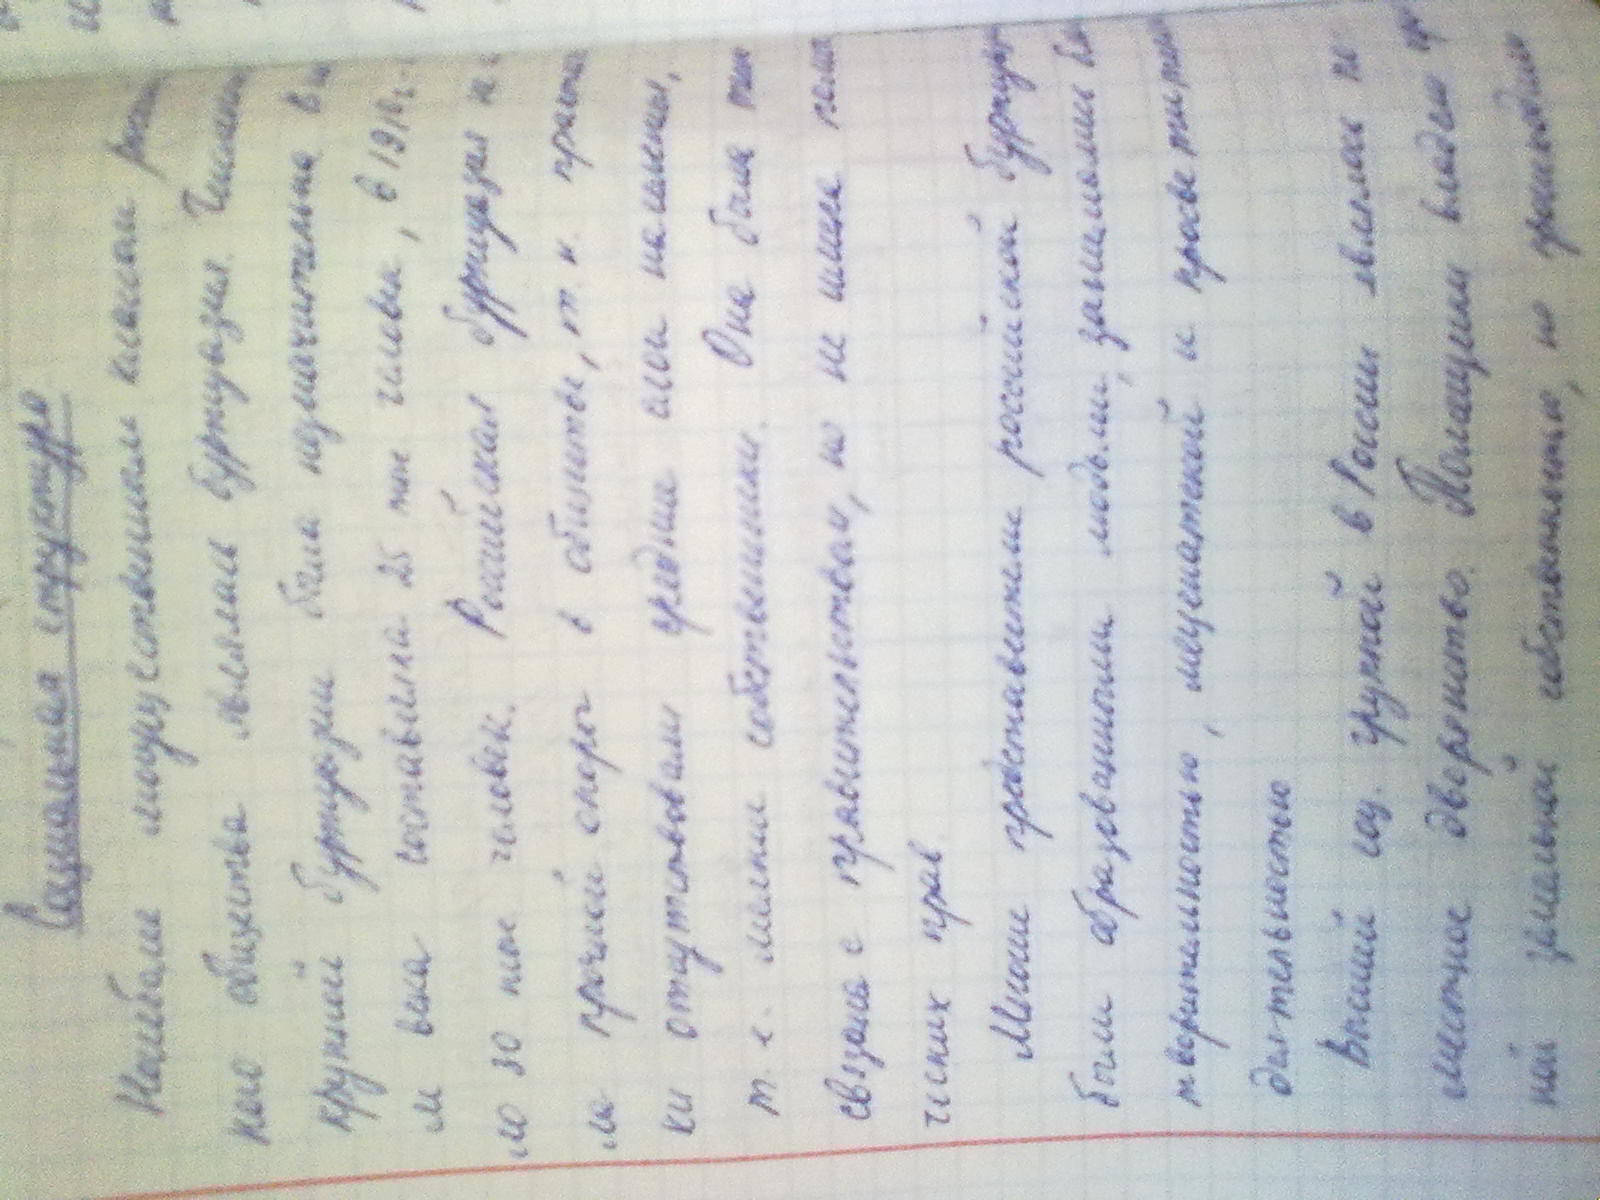 Социальная структура
Наиболее могущественным классом
кого общества являлась буржуазия.
крупной буржуазии была незначительна в
м века составляла 25 тыс человек, в 1912г.
ло 30 тыс человек. Российская буржуазия
ла прочной опоры в обществе, т. к.
ки отсутствовали средние слои населения,
т. е. мелкие собственники. Она была
связана с правительством, но не имела
ческих прав
Многие представители российской
были образованными людьми, занимались
творительностью, меценатской и
деятельностью
Высшей соц. группой в России являлось
местное дворянство. Помещики владели
ной земельной собственностью, но